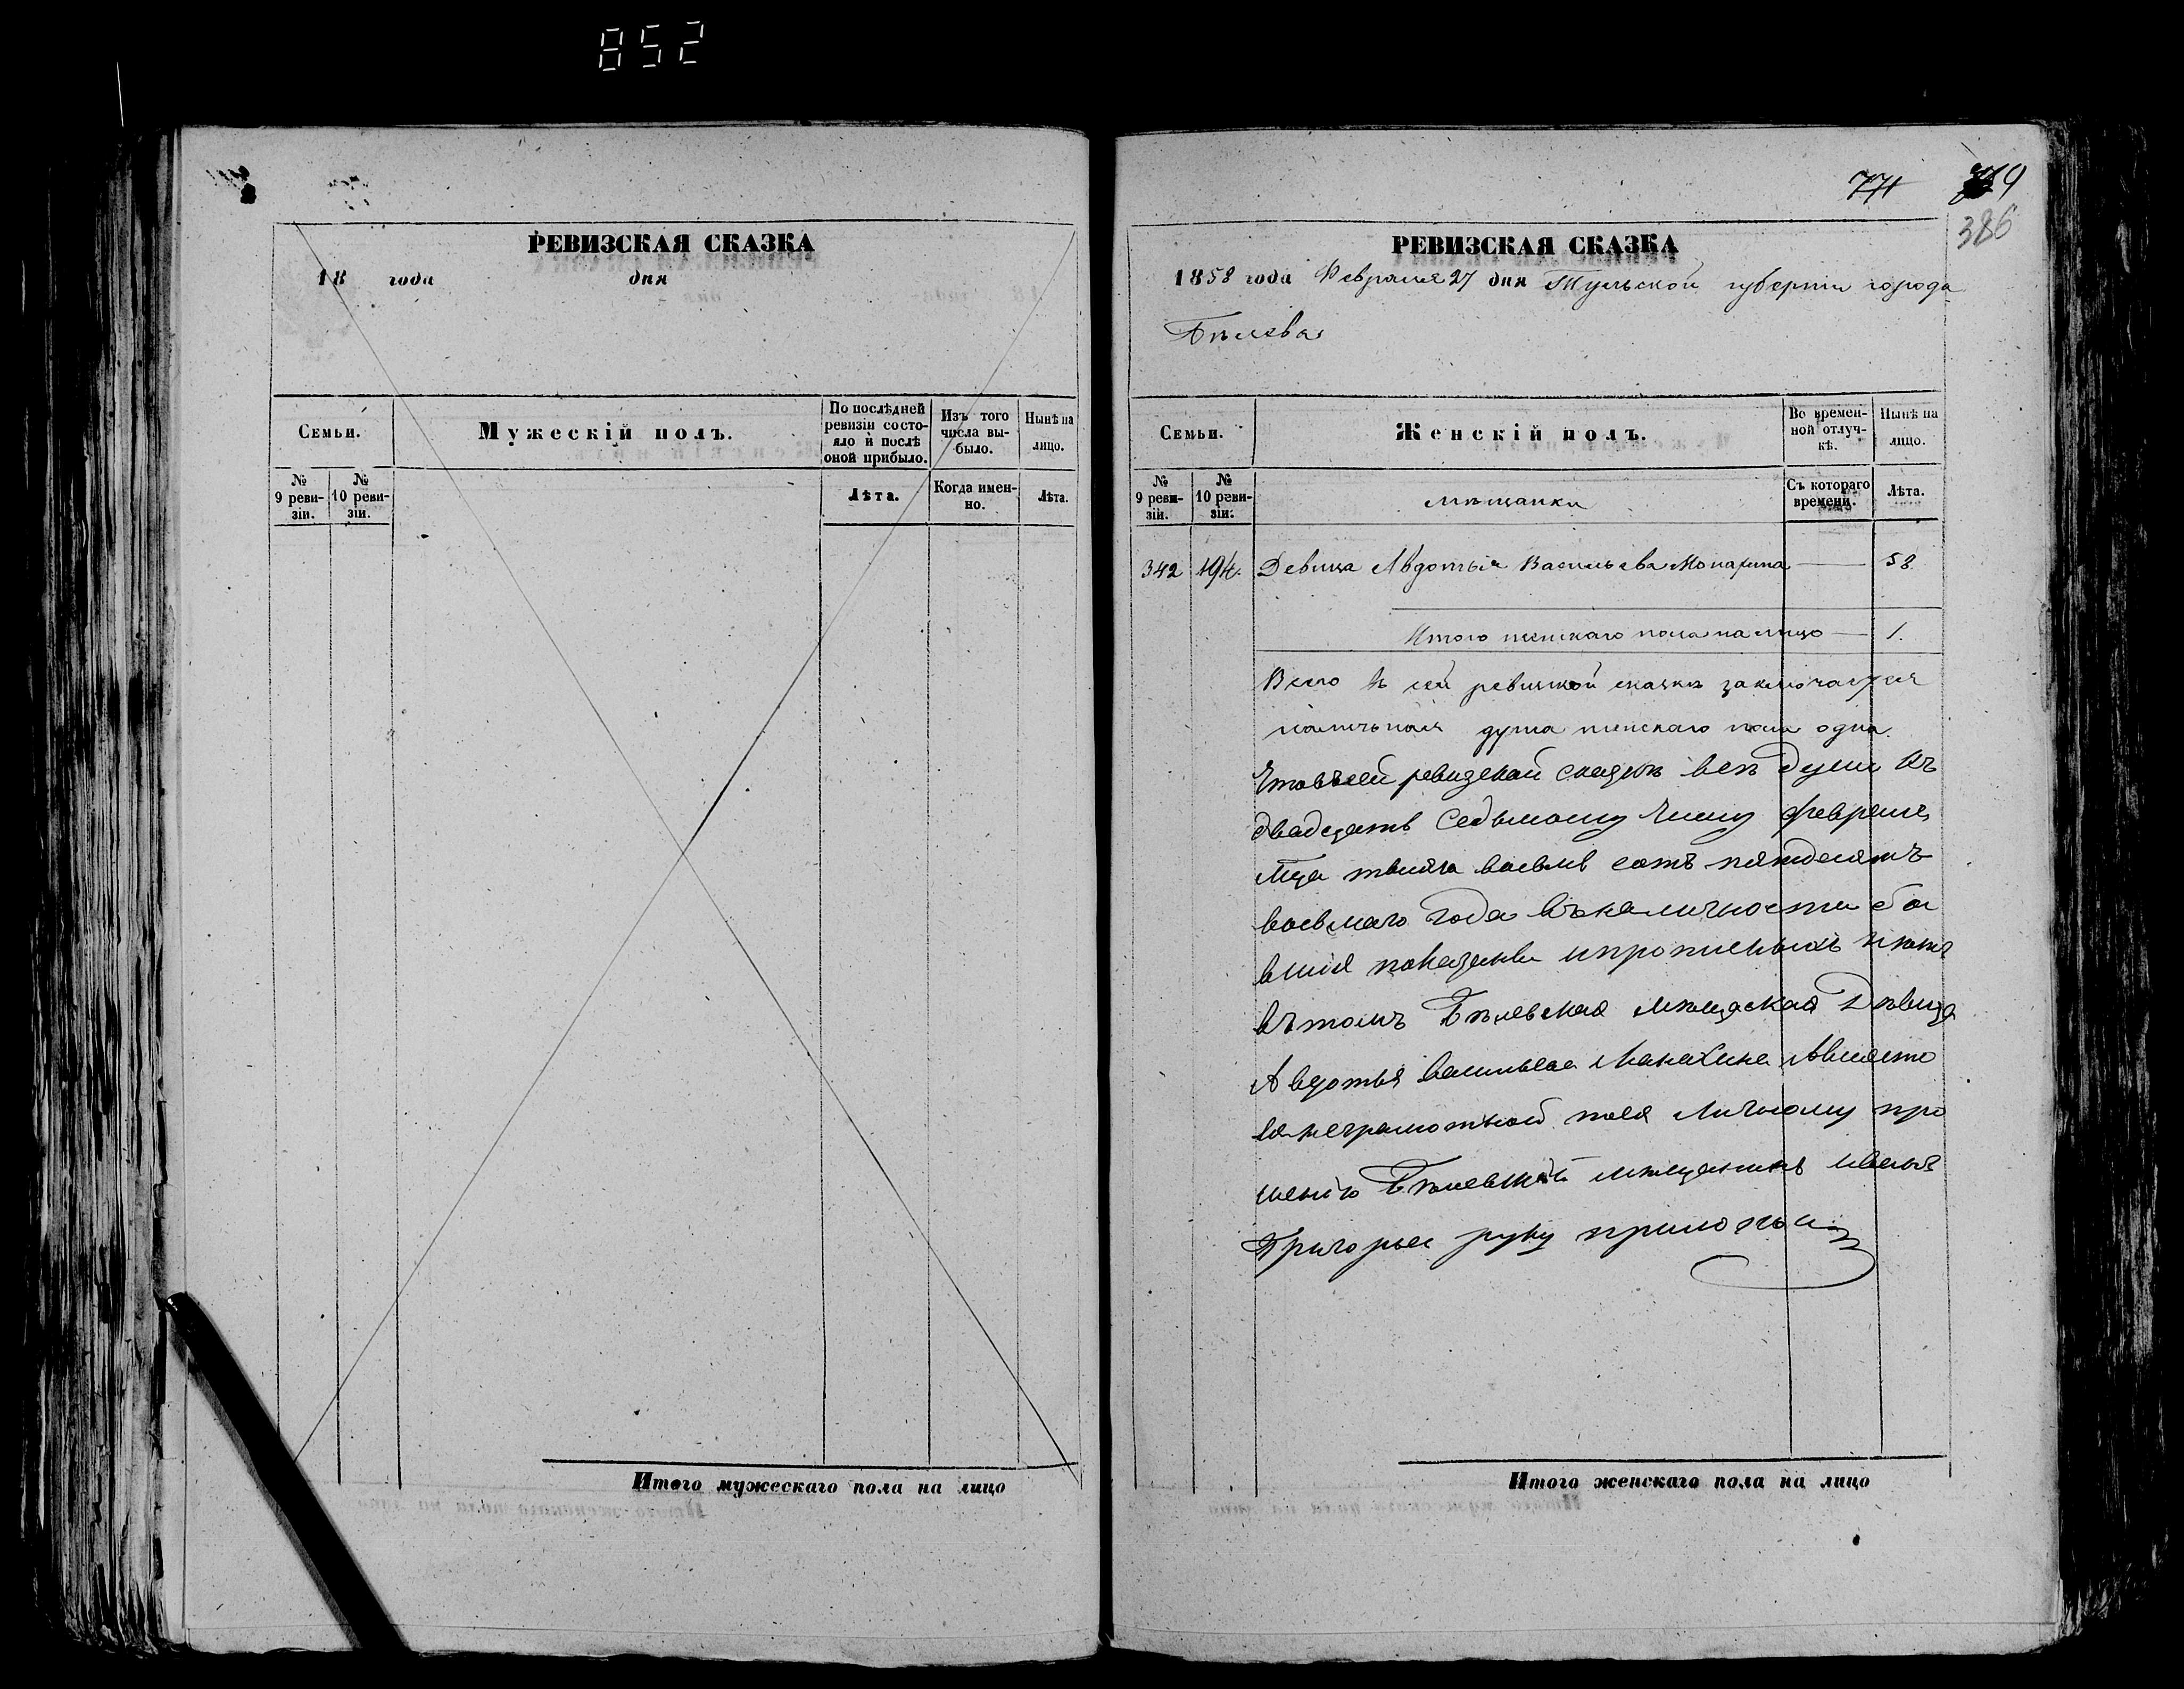 852
РЕВИЗСКАЯ СКАЗКА
18 года дня
Семьи.
Мужескій полъ.
По послѣдней ревизіи состояло и послѣ оной прибыло.
Изъ того числа выбыло.
Нынѣ на лицо.
№ 9 ревизіи.
№ 10 ревизіи.
Лѣта.
Когда именно.
Лѣта.
Итого мужескаго пола на лицо
771
386
РЕВИЗСКАЯ СКАЗКА
1858 года Февраля 27 дня Тульской губерніи города
Бѣлева
Семьи.
Женскій полъ.
Во временной отлучкѣ.
Нынѣ на лицо.
№ 9 ревизіи.
№ 10 ревизіи.
мѣщанки
Съ котораго времени.
Лѣта.
342 194. Девица Авдотья Васильева Монахина — 58
Итого женскаго пола на лицо — 1.
Всего въ сей ревизской сказкѣ заключается
наличная душа женскаго пола одна.
Что въ сей ревизской сказкѣ всѣ души къ
двадцать седьмому числу февраля
мца тысяча восемь сотъ пятдесятъ
восьмаго года въ наличности бы
вшія показаны и прописныхъ нѣтъ
въ томъ Бѣлевская мѣщаская Дѣвица
Авдотья Васильева Манахина Авместо
ея неграмотной поея личному про
шенію Бѣлевской мѣщанинъ иванъ
Григорьев руку приложил
Итого женскаго пола на лицо